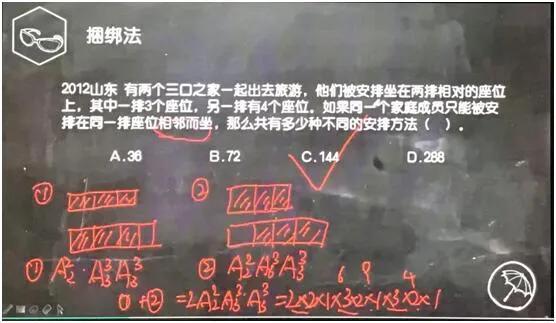 捆绑法
2012山东 有两个三口之家一起出去旅游，他们被安排坐在两排相对的座位
上，其中一排3个座位，另一排有4个座位。如果同一个家庭成员只能被安
排在同一排座位相邻而坐，那么共有多少种不同的安排方法（ ）。
A.36 B.72 C.144 D.288
① ②
① A₂² · A₃³ A₃³ ② A₂² A₃³ A₃³
6 8 4
①+② =2A₂²A₃³·A₃³ =2×2×1×3×2×1×3×2×1